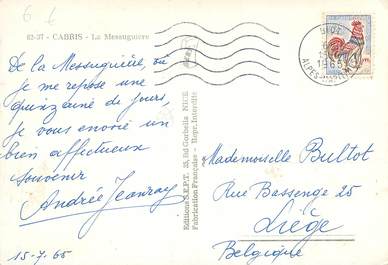 6 €
82-37 - CABRIS - La Messuguière
De la Messuguière, où
je me repose une
quinzaine de jours,
je vous envoie un
bien affectueux
souvenir
Andrée Jeanray
15-7.65
Editions S.E.P.T. 35, Bd Gorbella NICE
Fabrication Française - Repr. Interdite
1965
ALPES-MARITIMES
Mademoiselle Bultot
Rue Bassenge 25
Liège
Belgique